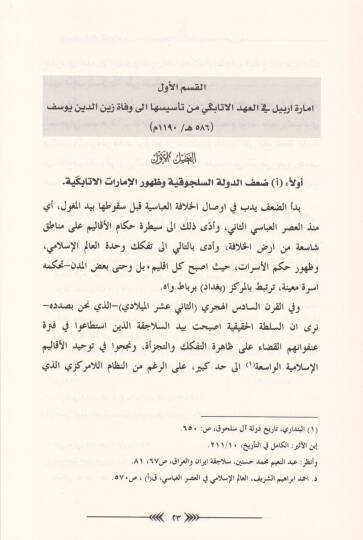 القسم الأول
امارة اربيل في العهد الاتابكي من تأسيسها الى وفاة زين الدين يوسف
(٥٨٦ هـ/ ١١٩٠م)
الفصل الأول
أولاً، (أ) ضعف الدولة السلجوقية وظهور الإمارات الاتابكية.
بدأ الضعف يدب في اوصال الخلافة العباسية قبل سقوطها بيد المغول، أي
منذ العصر العباسي الثاني، وأدى ذلك الى سيطرة حكام الأقاليم على مناطق
شاسعة من ارض الخلافة، وأدى بالتالي الى تفكك وحدة العالم الإسلامي،
وظهور حكم الأسرات، حيث اصبح كل اقليم، بل وحتى بعض المدن–تحكمه
اسرة معينة، ترتبط بالمركز (بغداد) برباط واه.
وفي القرن السادس الهجري (الثاني عشر الميلادي)–الذي نحن بصدده–
نرى ان السلطة الحقيقية اصبحت بيد السلاجقة الذين استطاعوا في فترة
عنفوانهم القضاء على ظاهرة التفكك والتجزأة، ونجحوا في توحيد الأقاليم
الإسلامية الواسعة(١) الى حد كبير، على الرغم من النظام اللامركزي الذي
(١) البنداري، تاريخ دولة آل سلجوق، ص: ٦٥٠.
إبن الأثير: الكامل في التأريخ، ٢١١/١٠.
وأنظر: عبد النعيم محمد حسنين، سلاجقة ايران والعراق، ص٦٧، ٨١.
د. احمد ابراهيم الشريف، العالم الإسلامي في العصر العباسي، ق(أ) ، ص٥٧٠.
٢٣